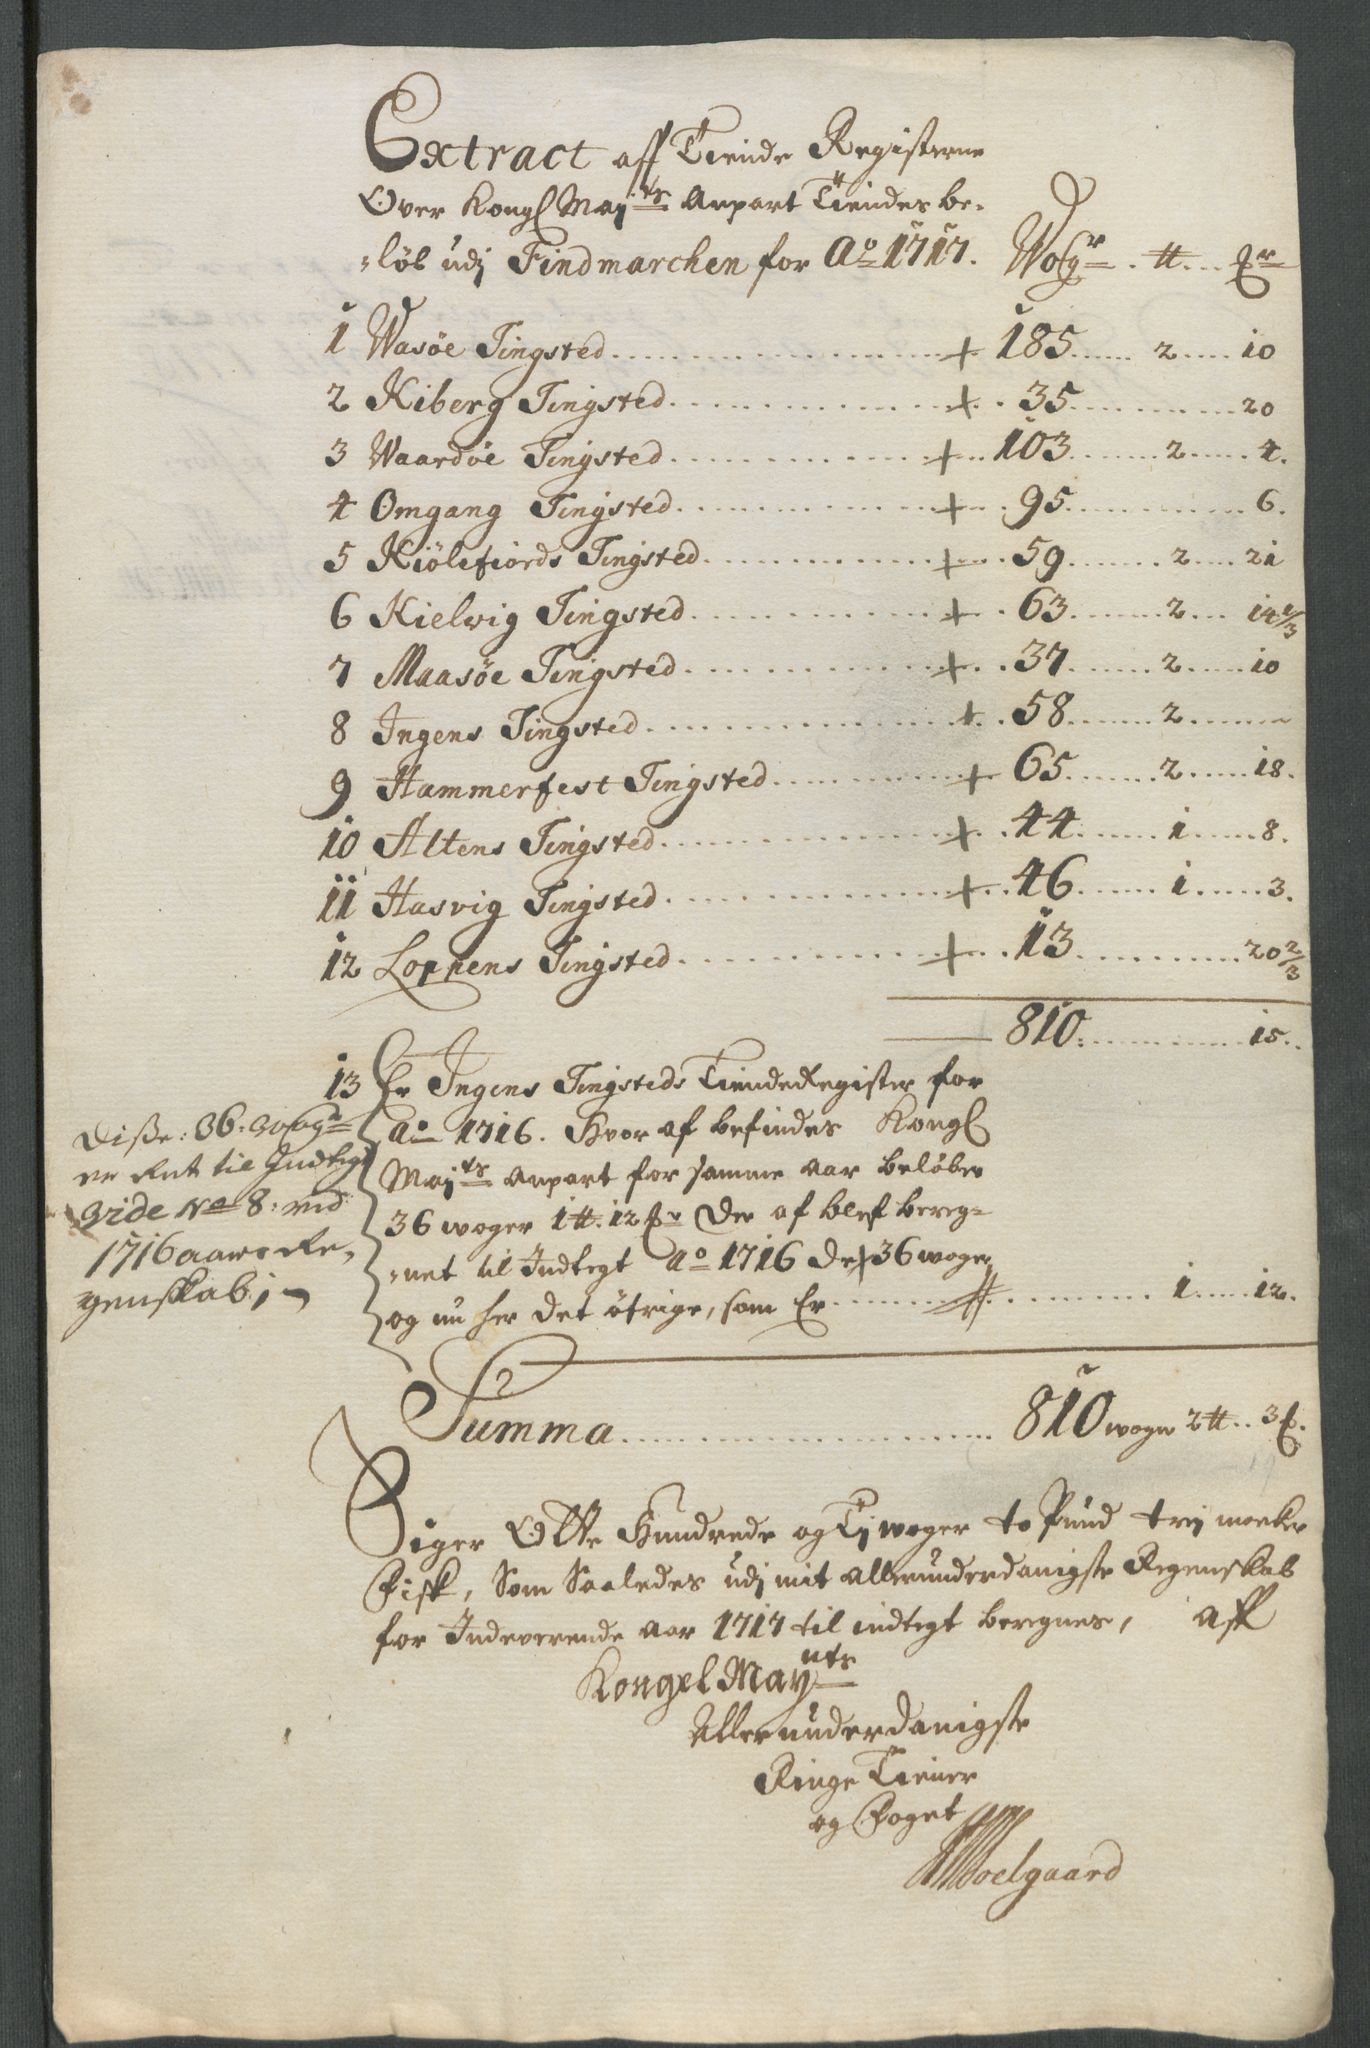 Extract aff Tiende Registerne
Over Kongl Mayts Anpart Tiendes be-
-løb udj Findmarchen for Ao 1717. Wogr . ℔ . . . Mr
1 Wasøe Tingsted . . . + 185 . . . 2 . . . 10
2 Kiberg Tingsted . . . + 35 . . . 20
3 Waardøe Tingsted . . . + 103 . . . 2 . . . 4.
4 Omgang Tingsted . . . + 95 . . . 6.
5 Kiölefiords Tingsted . . . + 59 . . . 2 . . . 21
6 Kielvig Tingsted . . . + 63 . . . 2 . . . 14 1/3
7 Maasøe Tingsted . . . + 37 . . . 2 . . . 10
8 Ingens Tingsted . . . + 58 . . . 2 . . .
9 Hammerfest Tingsted . . . + 65 . . . 2 . . . 18.
10 Altens Tingsted . . . + 44 . . . 1 . . . 8.
11 Hasvig Tingsted . . . + 46 . . . 1 . . . 3.
12 Loppens Tingsted . . . + 13 . . . 20 2/3
810 . . . 15.
13 Er Ingens Tingsteds TiendeRegister for
Ao 1716. Hvor af befindes Kongl
Mayts anpart for samme aar beløber
36 woger 1 ℔. 12 Mr Der af blef bereg-
-net til Indtegt Ao 1716 de 36 woger
og nu her det öfrige, som Er . . . 1 . . . 12.
Disse: 36: wogr
er ført til Indtegt
vide No 8: ved
1716 aars Re-
genskab:/
Summa . . . 810 woger 2 ℔ . . 3 M.
Siger Otte Hundrede og Tj woger to Pund trej merker
Fisk, Som Saaledes udj mit allerunderdanigste Regenskab
for Indeverende aar 1717 til indtegt beregnes, aff
Kongel Mayts
Allerunderdanigste
Ringe Tiener
og Foget
Soelgaard